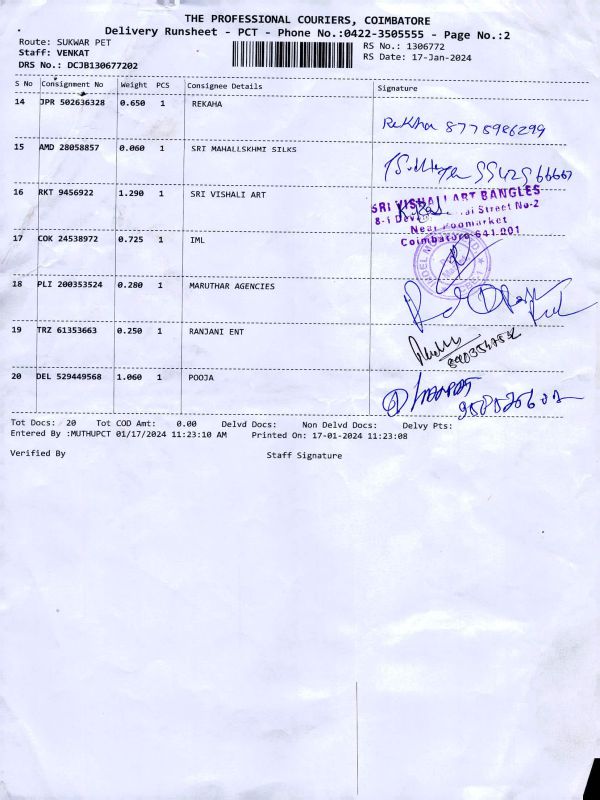 THE PROFESSIONAL COURIERS, COIMBATORE
Delivery Runsheet - PCT - Phone No.:0422-3505555 - Page No.:2
Route: SUKWAR PET
Staff: VENKAT
DRS No.: DCJB130677202
RS No.: 1306772
RS Date: 17-Jan-2024
S No Consignment No Weight PCS Consignee Details Signature
14 JPR 502636328 0.650 1 REKAHA
Rekha 8775986299
15 AMD 28058857 0.060 1 SRI MAHALLSKHMI SILKS
16 RKT 9456922 1.290 1 SRI VISHALI ART
SRI VISHALI ART BANGLES
Street No-2
Near Poomarket
Coimbatore-641 001
17 COK 24538972 0.725 1 IML
18 PLI 200353524 0.280 1 MARUTHAR AGENCIES
19 TRZ 61353663 0.250 1 RANJANI ENT
20 DEL 529449568 1.060 1 POOJA
Tot Docs: 20 Tot COD Amt: 0.00 Delvd Docs: Non Delvd Docs: Delvy Pts:
Entered By :MUTHUPCT 01/17/2024 11:23:10 AM Printed On: 17-01-2024 11:23:08
Verified By Staff Signature